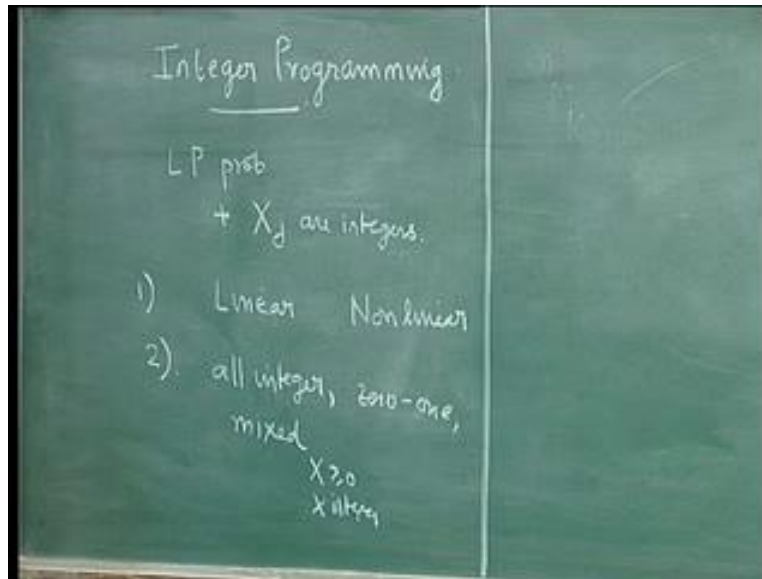 Integer Programming
LP prob
+ Xj are integers.
1) Linear Nonlinear
2). all integer, zero-one,
mixed
X ≥ 0
X integer